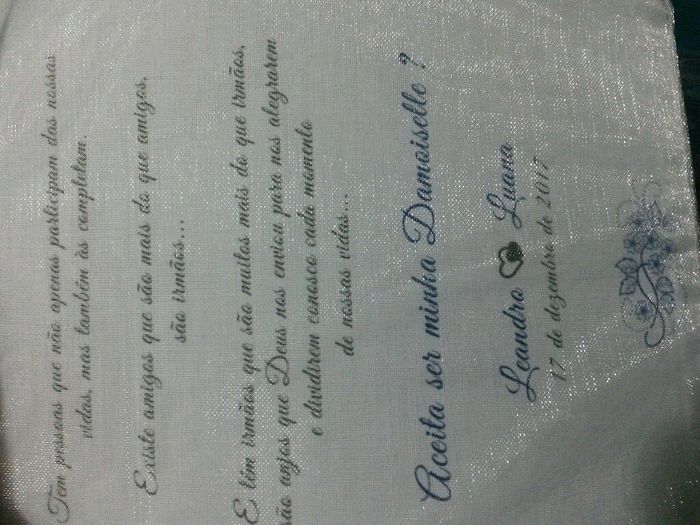 Tem pessoas que não apenas participam das nossas
vidas, mas também às completam.
Existe amigos que são mais do que amigos,
são irmãos...
E têm irmãos que são muitos mais do que irmãos,
são anjos que Deus nos enviou para nos alegrarem
e dividirem conosco cada momento
de nossas vidas...
Aceita ser minha Damoiselle ?
Leandro Luana
17 de dezembro de 2017